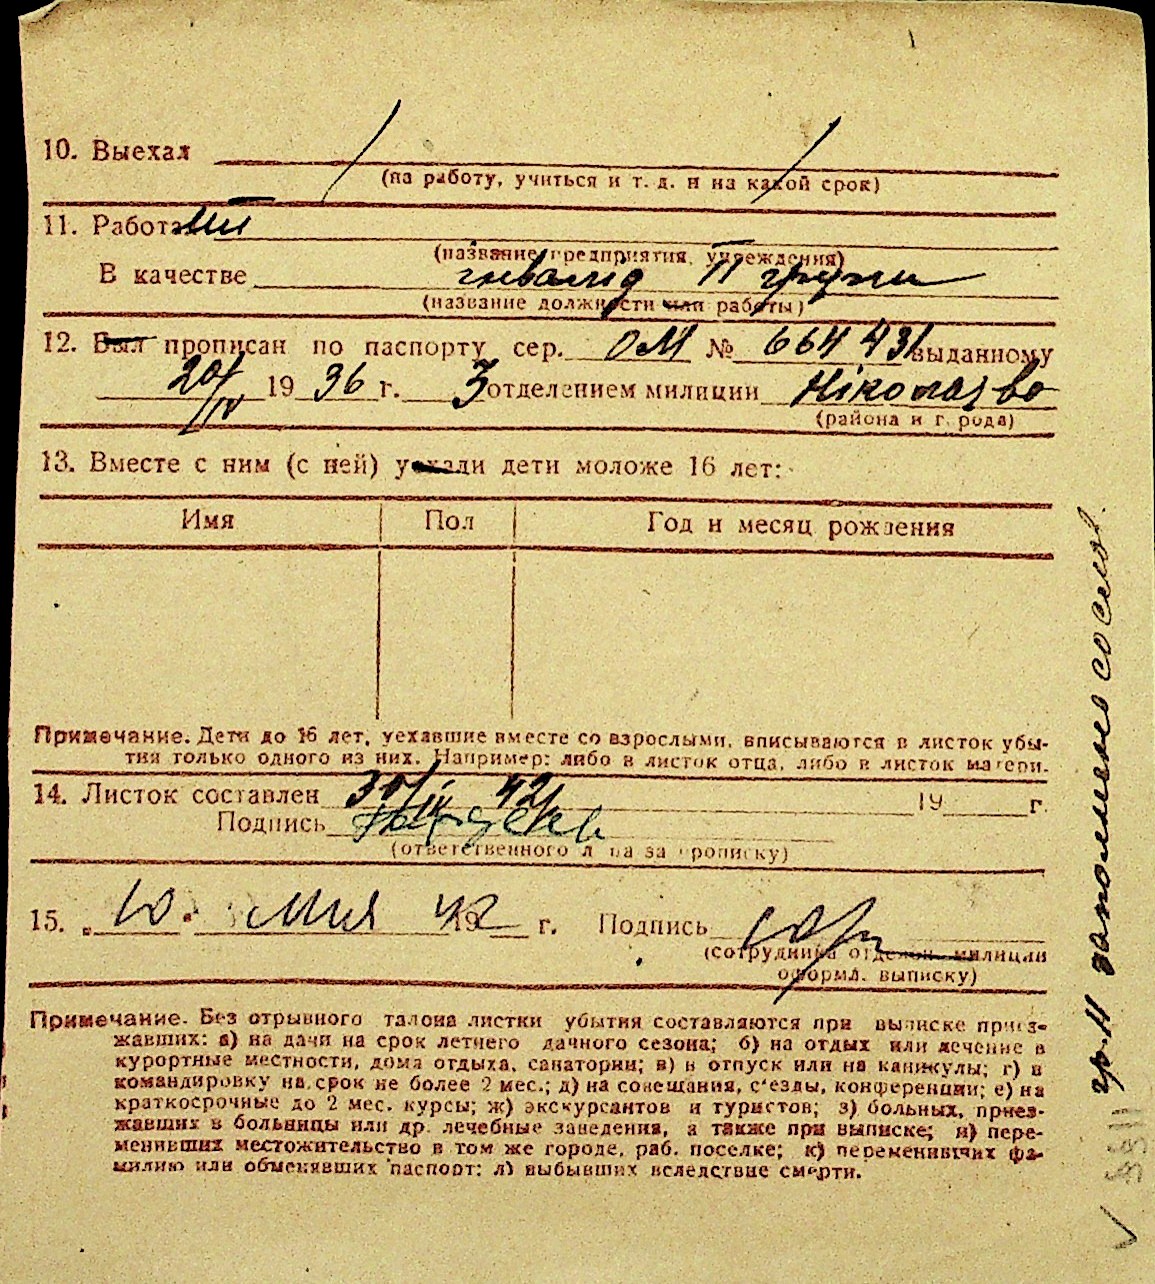 10. Выехал
(на работу, учиться и т. д. и на какой срок)
11. Работа
(название предприятия, учреждения)
В качестве інвалід II групи
(название должности или работы)
12. Был прописан по паспорту сер. ОМ № 664431 выданному
20/IV 1936 г. 3 отделением милиции Ніколаєво
(района и города)
13. Вместе с ним (с ней) уехали дети моложе 16 лет:
Имя Пол Год и месяц рождения
Примечание. Дети до 16 лет, уехавшие вместе со взрослыми, вписываются в листок убы-
тия только одного из них. Например: либо в листок отца, либо в листок матери.
14. Листок составлен 30/IV 42 19 г.
Подпись
(ответственного лица за прописку)
15. „10" мая 1942 г. Подпись
(сотрудника отделен. милиции
оформл. выписку)
Примечание. Без отрывного талона листки убытия составляются при выписке приез-
жавших: а) на дачи на срок летнего дачного сезона; б) на отдых или лечение в
курортные местности, дома отдыха, санатории; в) в отпуск или на каникулы; г) в
командировку на срок не более 2 мес.; д) на совещания, с'езды, конференции; е) на
краткосрочные до 2 мес. курсы; ж) экскурсантов и туристов; з) больных, приез-
жавших в больницы или др. лечебные заведения, а также при выписке; и) пере-
менивших местожительство в том же городе, раб. поселке; к) переменивших фа-
милию или обменявших паспорт; л) выбывших вследствие смерти.
гр-н заполнено со слов.